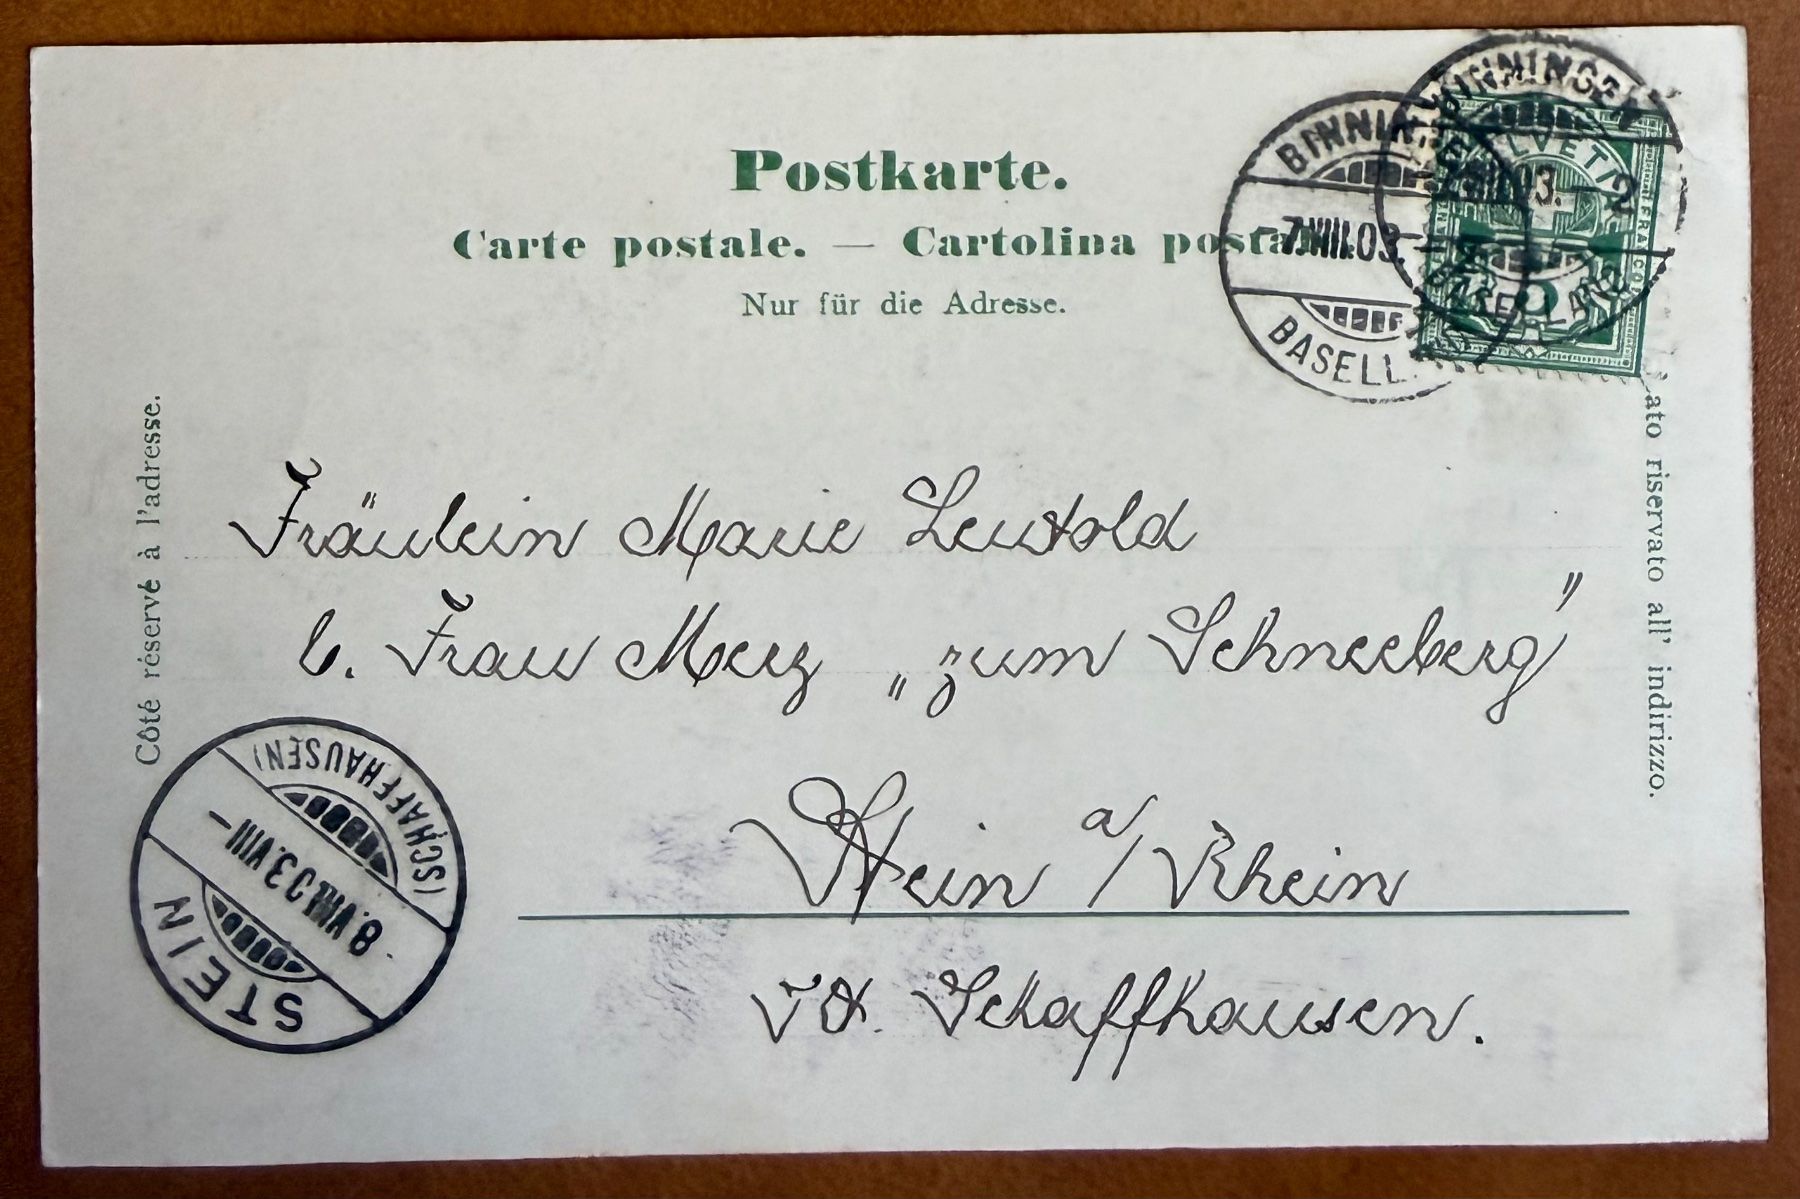 Postkarte.
Carte postale. — Cartolina
Nur für die Adresse.
BINNINGEN
7.VIII.03.
BASELLAND
Côté réservé à l'adresse.
riservato all' indirizzo.
Fräulein Marie Leutold
b. Frau Merz „zum Schneeberg"
Stein a/Rhein
Kt. Schaffhausen.
STEIN
8.VIII.03.VIII—
(SCHAFFHAUSEN)